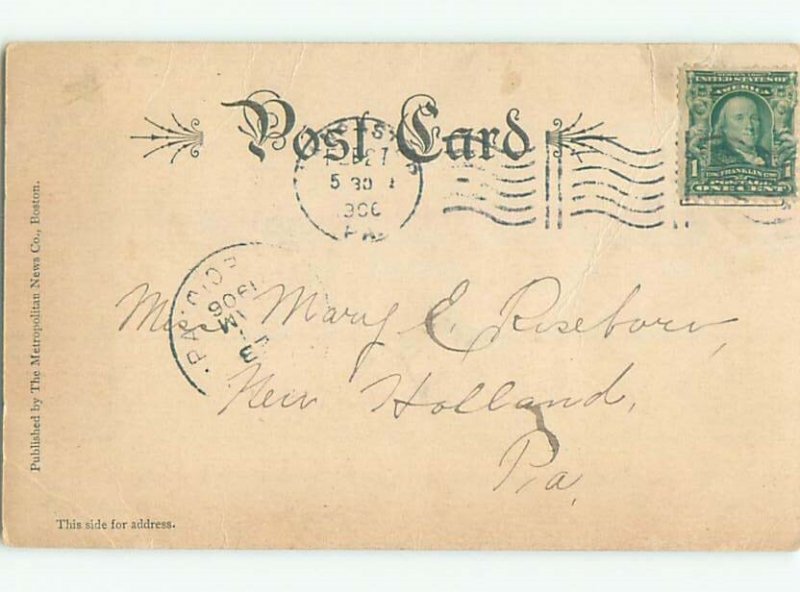 Post Card
SERIES 1902
UNITED STATES OF
AMERICA
1 FRANKLIN 1
POSTAGE
ONE CENT
5 30
1906
PA
REC'D.
1906
M
3
PA.
Miss Mary E. Roseboro,
New Holland,
Pa.
Published by The Metropolitan News Co., Boston.
This side for address.